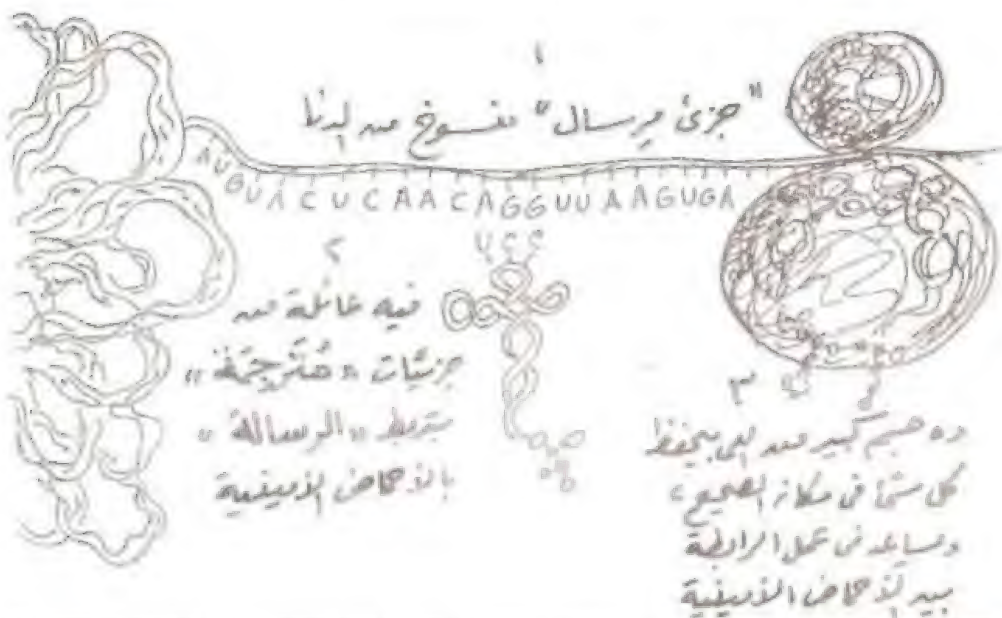 ١
"جزئ مرسال" منسوخ من الدنا
AUGUACUCAACAGGUUAAGUGA
UCC
٢
فيه عائلة من
جزيئات «مُترجِمَة»
بتربط «الرسالة»
بالأحماض الأمينية
٣
ده جسم كبير من اللى بيحفظ
كل شئ فى مكانه الصحيح،
ويساعد فى عمل الرابطة
بين الأحماض الأمينية